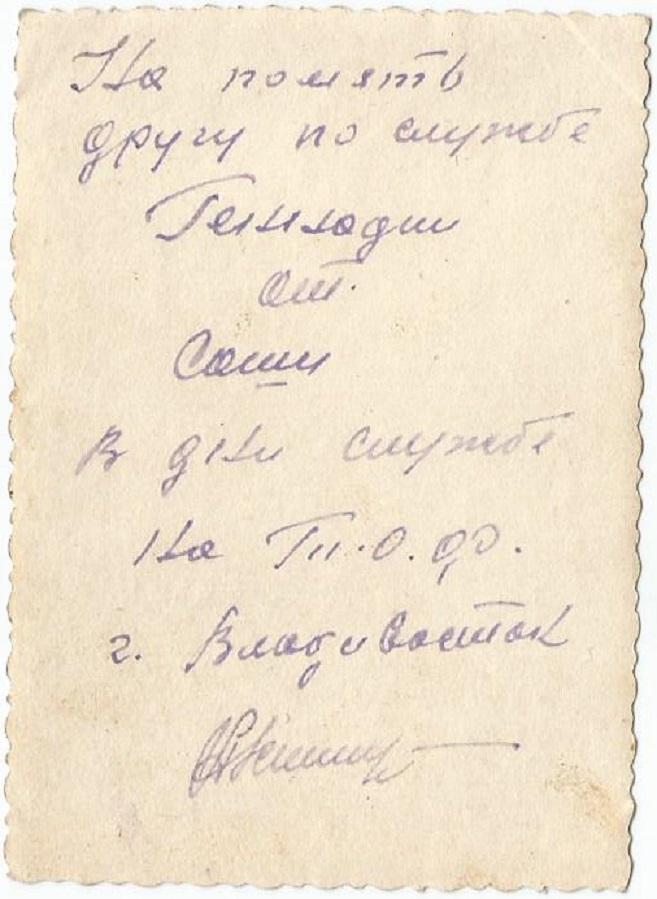 На помять
другу по службе
Геннадии
от
Саши
В дни службе
на Ти.О.Ф.
г. Владивосток